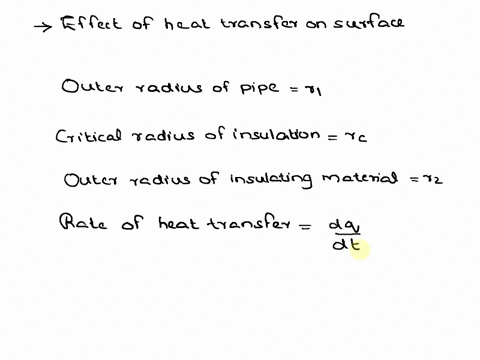 → Effect of heat transfer on surface
Outer radius of pipe = r1
Critical radius of insulation = rc
Outer radius of insulating material = r2
Rate of heat transfer = dq/dt